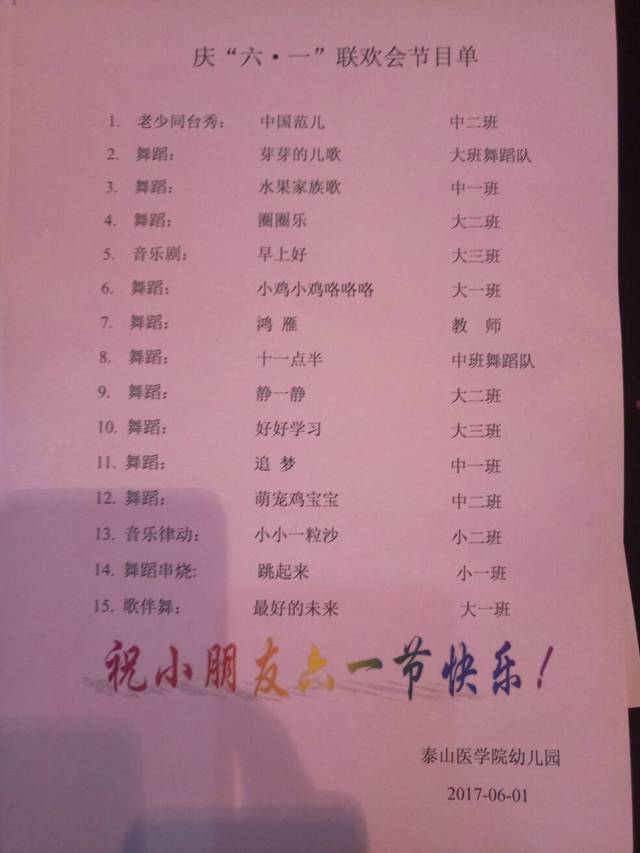 庆“六·一”联欢会节目单
1. 老少同台秀： 中国范儿 中二班
2. 舞蹈： 芽芽的儿歌 大班舞蹈队
3. 舞蹈： 水果家族歌 中一班
4. 舞蹈： 圈圈乐 大二班
5. 音乐剧： 早上好 大三班
6. 舞蹈： 小鸡小鸡咯咯咯 大一班
7. 舞蹈： 鸿 雁 教 师
8. 舞蹈： 十一点半 中班舞蹈队
9. 舞蹈： 静一静 大二班
10. 舞蹈： 好好学习 大三班
11. 舞蹈： 追 梦 中一班
12. 舞蹈： 萌宠鸡宝宝 中二班
13. 音乐律动： 小小一粒沙 小二班
14. 舞蹈串烧: 跳起来 小一班
15. 歌伴舞： 最好的未来 大一班
祝小朋友六一节快乐！
泰山医学院幼儿园
2017-06-01